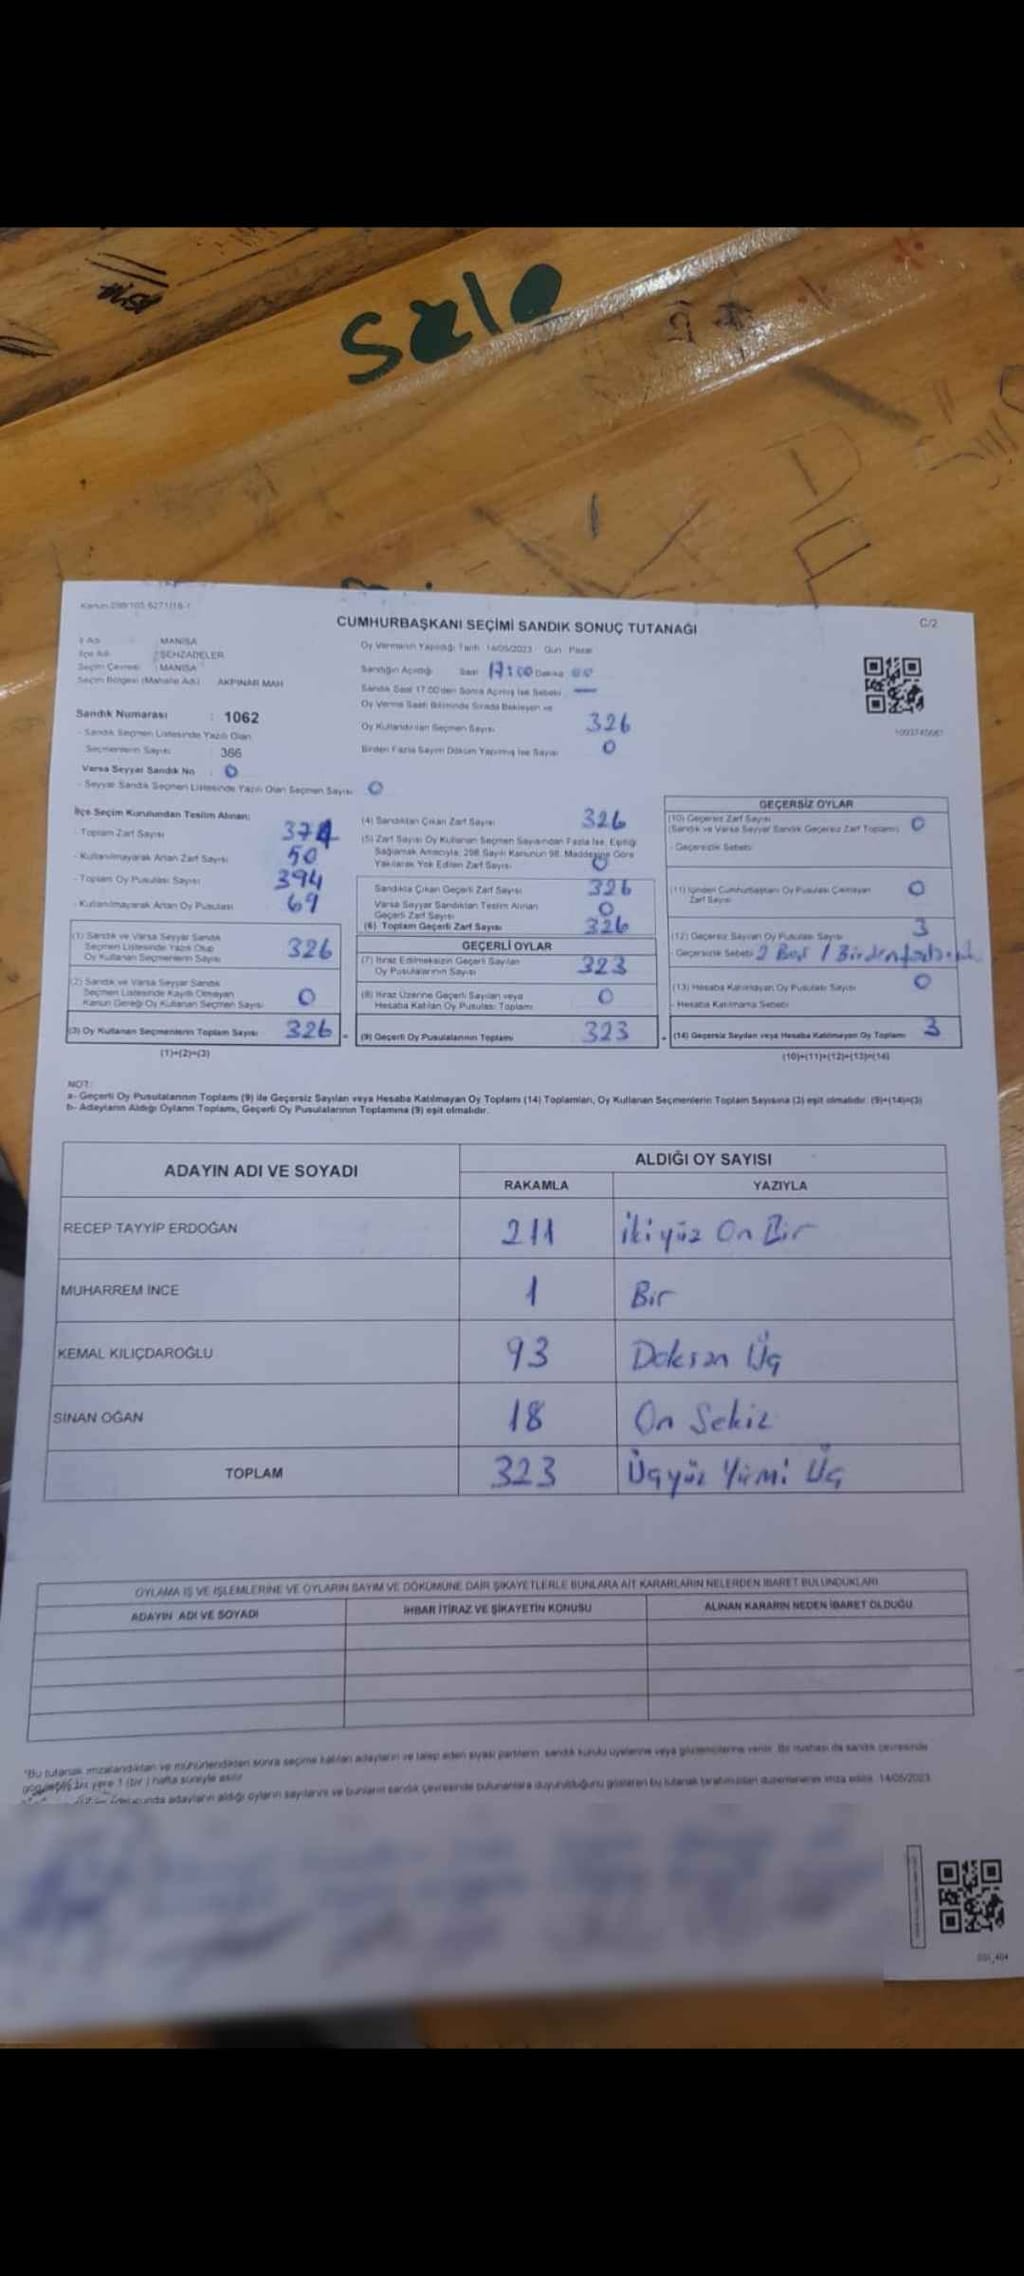 Sale
CUMHURBAŞKANI SEÇİMİ SANDIK SONUÇ TUTANAĞI
C/2
İl Adı : MANİSA
İlçe Adı : ŞEHZADELER
Seçim Çevresi : MANİSA
Seçim Bölgesi (Mahalle Adı) : AKPINAR MAH
Sandık Numarası : 1062
- Sandık Seçmen Listesinde Yazılı Olan
Seçmenlerin Sayısı : 366
Varsa Seyyar Sandık No : 0
- Seyyar Sandık Seçmen Listesinde Yazılı Olan Seçmen Sayısı : 0
Oy Vermenin Yapıldığı Tarih : 14/05/2023 Gün : Pazar
Sandığın Açıldığı Saat 17:00 Dakika 00
Sandık Saat 17.00'den Sonra Açılmış İse Sebebi —
Oy Verme Saati Bitiminde Sırada Bekleyen ve
Oy Kullandırılan Seçmen Sayısı 326
Birden Fazla Sayım Döküm Yapılmış İse Sayısı 0
İlçe Seçim Kurulundan Teslim Alınan:
- Toplam Zarf Sayısı 374
- Kullanılmayarak Artan Zarf Sayısı 50
- Toplam Oy Pusulası Sayısı 394
- Kullanılmayarak Artan Oy Pusulası 69
(1) Sandık ve Varsa Seyyar Sandık
Seçmen Listesinde Yazılı Olup
Oy Kullanan Seçmenlerin Sayısı 326
(2) Sandık ve Varsa Seyyar Sandık
Seçmen Listesinde Kayıtlı Olmayan
Kanun Gereği Oy Kullanan Seçmen Sayısı 0
(3) Oy Kullanan Seçmenlerin Toplam Sayısı 326
(1)+(2)=(3)
(4) Sandıktan Çıkan Zarf Sayısı 326
(5) Zarf Sayısı Oy Kullanan Seçmen Sayısından Fazla İse, Eşitliği
Sağlamak Amacıyla, 298 Sayılı Kanunun 98. Maddesine Göre
Yakılarak Yok Edilen Zarf Sayısı 0
Sandıkta Çıkan Geçerli Zarf Sayısı 326
Varsa Seyyar Sandıktan Teslim Alınan
Geçerli Zarf Sayısı 0
(6) Toplam Geçerli Zarf Sayısı 326
GEÇERLİ OYLAR
(7) İtiraz Edilmeksizin Geçerli Sayılan
Oy Pusulalarının Sayısı 323
(8) İtiraz Üzerine Geçerli Sayılan veya
Hesaba Katılan Oy Pusulası Toplamı 0
(9) Geçerli Oy Pusulalarının Toplamı 323
GEÇERSİZ OYLAR
(10) Geçersiz Zarf Sayısı 0
(Sandık ve Varsa Seyyar Sandık Geçersiz Zarf Toplamı)
- Geçersizlik Sebebi
(11) İçinden Cumhurbaşkanı Oy Pusulası Çıkmayan
Zarf Sayısı 0
(12) Geçersiz Sayılan Oy Pusulası Sayısı 3
- Geçersizlik Sebebi 2 Boş 1 Birden
(13) Hesaba Katılmayan Oy Pusulası Sayısı 0
- Hesaba Katılmama Sebebi
(14) Geçersiz Sayılan veya Hesaba Katılmayan Oy Toplamı 3
(10)+(11)+(12)+(13)=(14)
NOT:
a- Geçerli Oy Pusulalarının Toplamı (9) ile Geçersiz Sayılan veya Hesaba Katılmayan Oy Toplamı (14) Toplamları, Oy Kullanan Seçmenlerin Toplam Sayısına (3) eşit olmalıdır. (9)+(14)=(3)
b- Adayların Aldığı Oyların Toplamı, Geçerli Oy Pusulalarının Toplamına (9) eşit olmalıdır.
ADAYIN ADI VE SOYADI
ALDIĞI OY SAYISI
RAKAMLA YAZIYLA
RECEP TAYYİP ERDOĞAN 211 İkiyüz On Bir
MUHARREM İNCE 1 Bir
KEMAL KILIÇDAROĞLU 93 Doksan Üç
SİNAN OĞAN 18 On Sekiz
TOPLAM 323 Üçyüz Yirmi Üç
OYLAMA İŞ VE İŞLEMLERİNE VE OYLARIN SAYIM VE DÖKÜMÜNE DAİR ŞİKAYETLERLE BUNLARA AİT KARARLARIN NELERDEN İBARET BULUNDUKLARI
ADAYIN ADI VE SOYADI İHBAR İTİRAZ VE ŞİKAYETİN KONUSU ALINAN KARARIN NEDEN İBARET OLDUĞU
"Bu tutanak imzalandıktan ve mühürlendikten sonra seçime katılan adayların ve talep eden siyasi partilerin, sandık kurulu üyelerine veya gözlemcilerine verilir. Bir nüshası da sandık çevresinde
yere 1 (bir) hafta süreyle asılır.
adayların aldığı oyların sayılarını ve bunların sandık çevresinde bulunanlara duyurulduğunu gösteren bu tutanak tarafımızdan düzenlenerek imza edildi. 14/05/2023